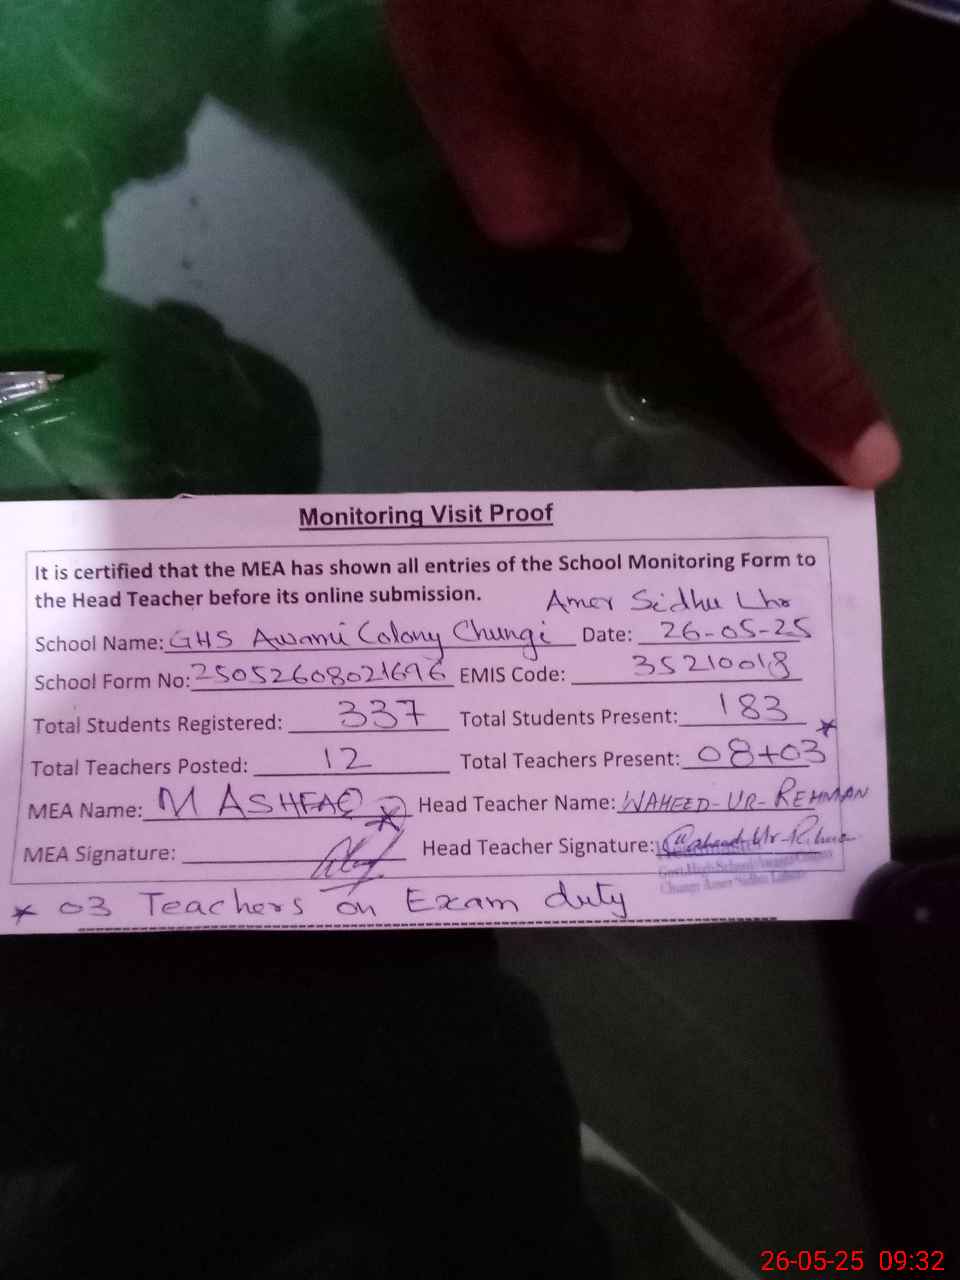 Monitoring Visit Proof
It is certified that the MEA has shown all entries of the School Monitoring Form to
the Head Teacher before its online submission.
Amer Sidhu Lhr
School Name: GHS Awami Colony Chungi Date: 26-05-25
School Form No: 25052608021696 EMIS Code: 35210018
Total Students Registered: 337 Total Students Present: 183
Total Teachers Posted: 12 Total Teachers Present: 08+03*
MEA Name: M ASHFAQ Head Teacher Name: WAHEED-UR-REHMAN
MEA Signature: Head Teacher Signature: Waheed-Ur-Rehman
Govt. High School Awami Colony
Chungi Amer Sidhu Lahore
* 03 Teachers on Exam duty
26-05-25 09:32